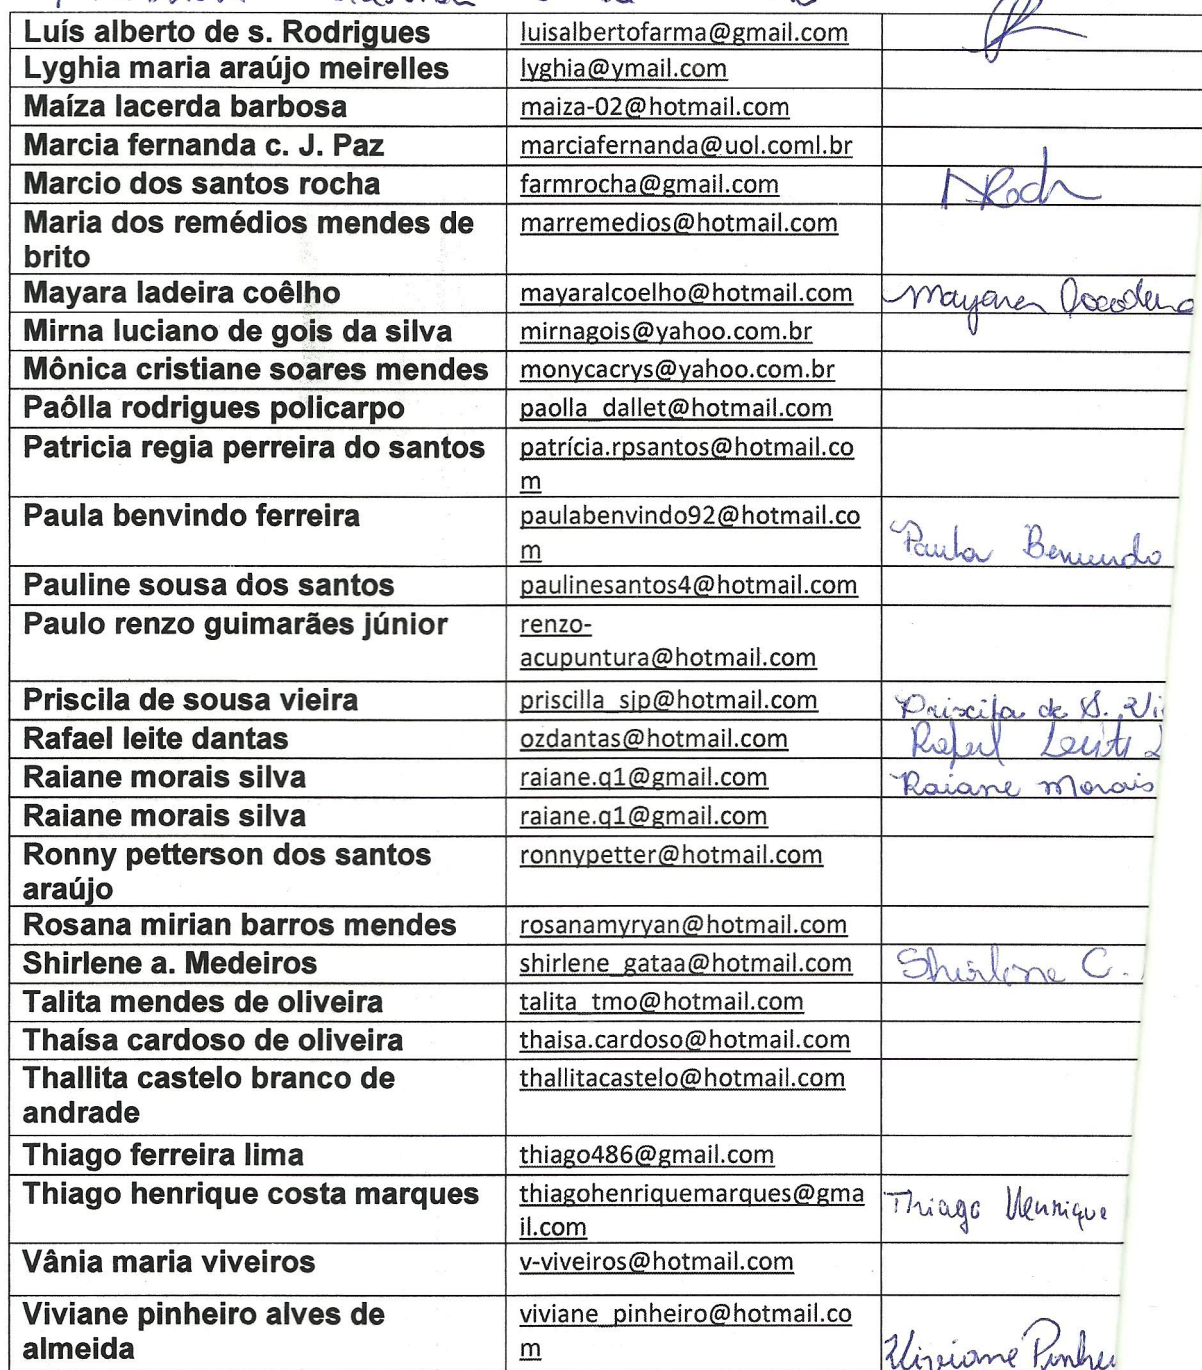 Luís alberto de s. Rodrigues luisalbertofarma@gmail.com
Lyghia maria araújo meirelles lyghia@ymail.com
Maíza lacerda barbosa maiza-02@hotmail.com
Marcia fernanda c. J. Paz marciafernanda@uol.coml.br
Marcio dos santos rocha farmrocha@gmail.com
Maria dos remédios mendes de marremedios@hotmail.com
brito
Mayara ladeira coêlho mayaralcoelho@hotmail.com Mayara
Mirna luciano de gois da silva mirnagois@yahoo.com.br
Mônica cristiane soares mendes monycacrys@yahoo.com.br
Paôlla rodrigues policarpo paolla_dallet@hotmail.com
Patricia regia perreira do santos patrícia.rpsantos@hotmail.co
m
Paula benvindo ferreira paulabenvindo92@hotmail.co
m Paula Benvindo
Pauline sousa dos santos paulinesantos4@hotmail.com
Paulo renzo guimarães júnior renzo-
acupuntura@hotmail.com
Priscila de sousa vieira priscilla_sjp@hotmail.com Priscila de S. Vi
Rafael leite dantas ozdantas@hotmail.com Rafael Leite
Raiane morais silva raiane.q1@gmail.com Raiane Morais
Raiane morais silva raiane.q1@gmail.com
Ronny petterson dos santos ronnypetter@hotmail.com
araújo
Rosana mirian barros mendes rosanamyryan@hotmail.com
Shirlene a. Medeiros shirlene_gataa@hotmail.com Shirlene C.
Talita mendes de oliveira talita_tmo@hotmail.com
Thaísa cardoso de oliveira thaisa.cardoso@hotmail.com
Thallita castelo branco de thallitacastelo@hotmail.com
andrade
Thiago ferreira lima thiago486@gmail.com
Thiago henrique costa marques thiagohenriquemarques@gma Thiago Henrique
il.com
Vânia maria viveiros v-viveiros@hotmail.com
Viviane pinheiro alves de viviane_pinheiro@hotmail.co
almeida m Viviane Pinhei